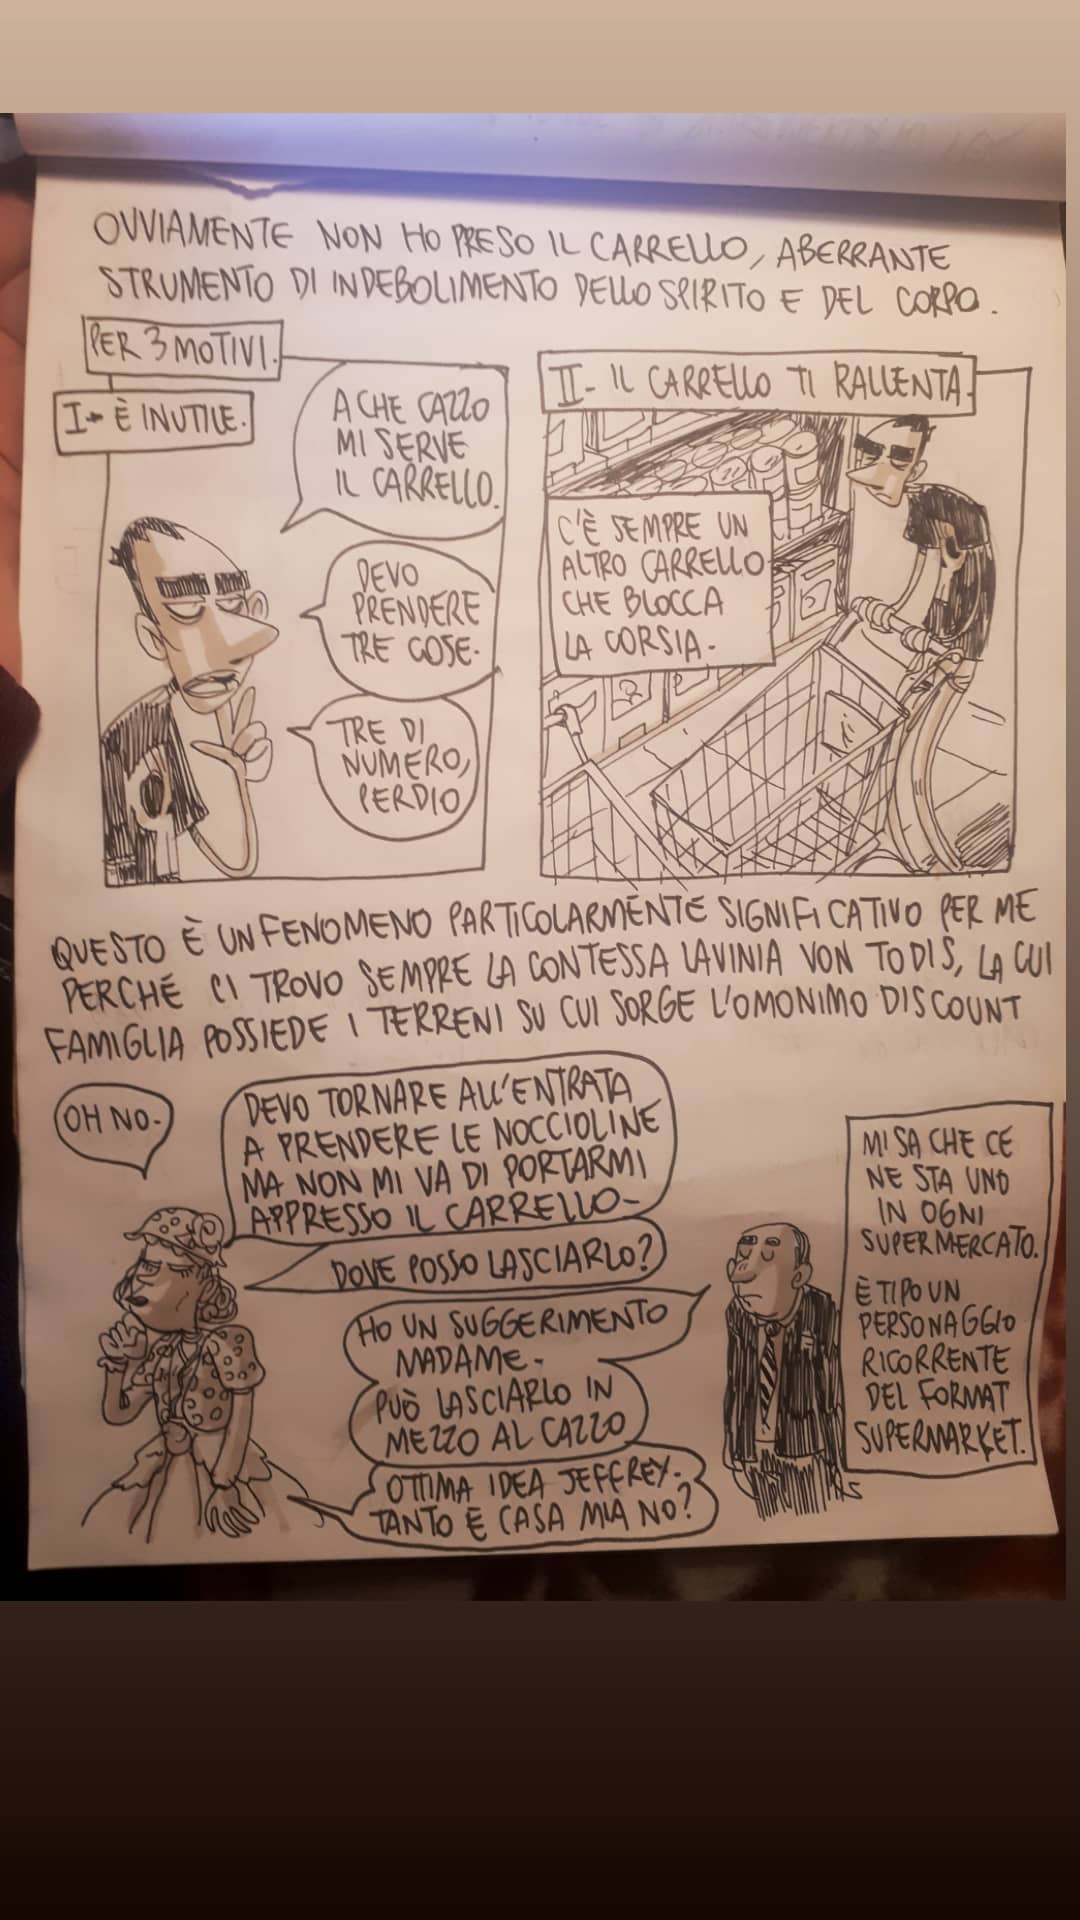 OVVIAMENTE NON HO PRESO IL CARRELLO, ABERRANTE
STRUMENTO DI INDEBOLIMENTO DELLO SPIRITO E DEL CORPO.
PER 3 MOTIVI.
I- È INUTILE.
A CHE CAZZO
MI SERVE
IL CARRELLO.
DEVO
PRENDERE
TRE COSE.
TRE DI
NUMERO,
PERDIO
II- IL CARRELLO TI RALLENTA.
C'È SEMPRE UN
ALTRO CARRELLO
CHE BLOCCA
LA CORSIA.
QUESTO È UN FENOMENO PARTICOLARMENTE SIGNIFICATIVO PER ME
PERCHÉ CI TROVO SEMPRE LA CONTESSA LAVINIA VON TODIS, LA CUI
FAMIGLIA POSSIEDE I TERRENI SU CUI SORGE L'OMONIMO DISCOUNT
OH NO.
DEVO TORNARE ALL'ENTRATA
A PRENDERE LE NOCCIOLINE
MA NON MI VA DI PORTARMI
APPRESSO IL CARRELLO-
DOVE POSSO LASCIARLO?
HO UN SUGGERIMENTO
MADAME.
PUÒ LASCIARLO IN
MEZZO AL CAZZO
OTTIMA IDEA JEFFREY.
TANTO È CASA MIA NO?
MI SA CHE CE
NE STA UNO
IN OGNI
SUPERMERCATO.
È TIPO UN
PERSONAGGIO
RICORRENTE
DEL FORMAT
SUPERMARKET.